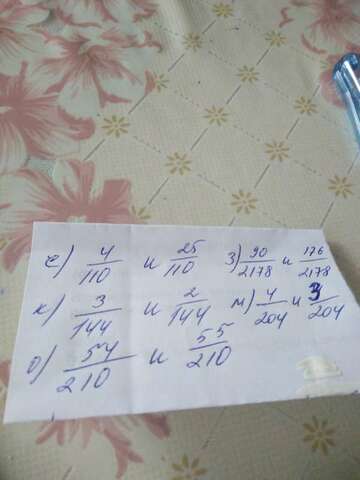 е) 4/110 и 25/110 з) 90/2178 и 176/2178
к) 3/144 и 2/144 м) 4/204 и 3/204
о) 54/210 и 55/210